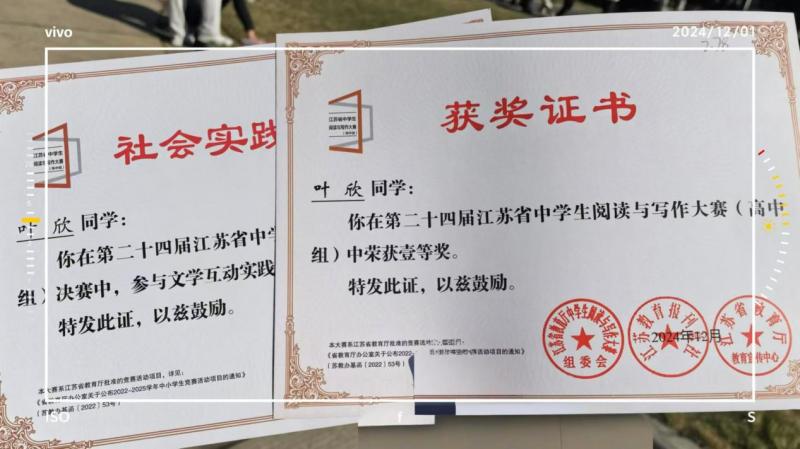 vivo
2024/12/01
江苏省中学生
阅读与写作大赛
社会实践
叶 欣 同学:
你在第二十四届江苏省中学
组）决赛中，参与文学互动实践
特发此证，以兹鼓励。
本大赛系江苏省教育厅批准的竞赛活动项目，详见:
《省教育厅办公室关于公布2022-2025学年中小学生竞赛活动项目的通知》
（苏教办基函〔2022〕53号）
江苏省中学生
阅读与写作大赛
获奖证书
叶 欣 同学:
你在第二十四届江苏省中学生阅读与写作大赛（高中
组）中荣获壹等奖。
特发此证，以兹鼓励。
组委会
江苏教育报刊社
江苏省教育厅
教育宣传中心
2024年12月
本大赛系江苏省教育厅批准的竞赛活
《省教育厅办公室关于公布2022
竞赛活动项目的通知》
（苏教办基函〔2022〕53号）
ISO
f
S